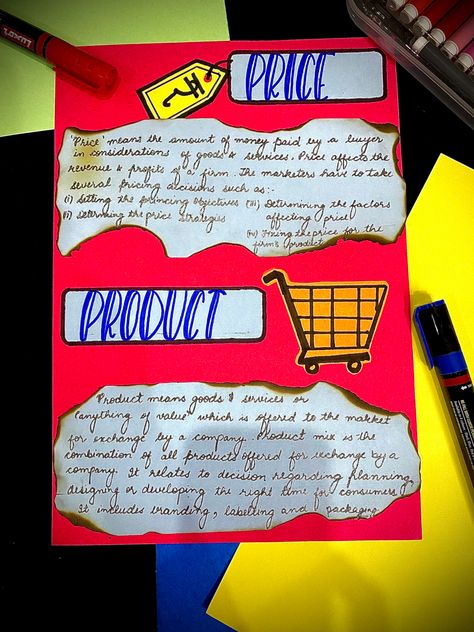 Luxor
₹
PRICE
'Price' means the amount of money paid by a buyer
in considerations of goods & services. Price affects the
revenue & profits of a firm. The marketers have to take
several pricing decisions such as:-
(i) Setting the princing objectives (iii) Determining the factors
affecting price
(ii) Determing the price strategies
(iv) Fixing the price for the
firm's product
PRODUCT
Product means goods & services or
'anything of value' which is offered to the market
for exchange by a company. Product mix is the
combination of all products offered for exchange by a
company. It relates to decision regarding planning,
designing or developing the right time for consumers.
It includes branding, labelling and packaging